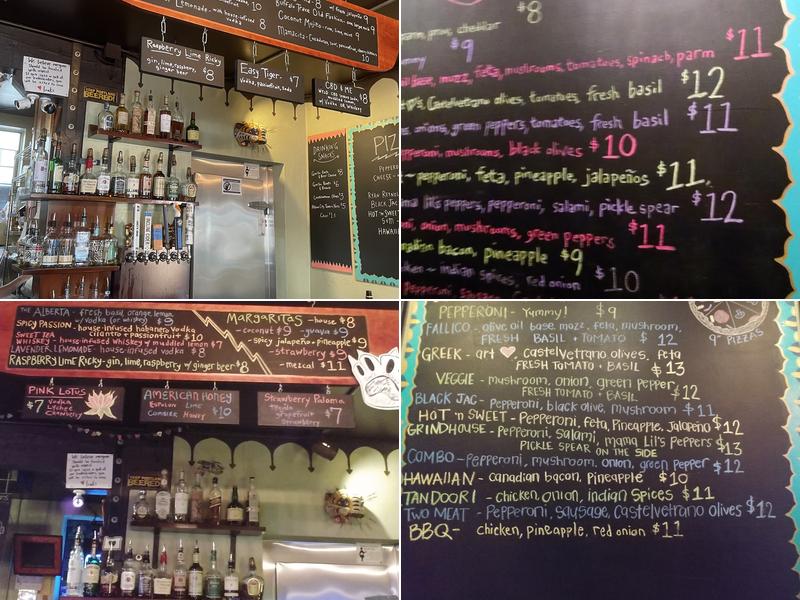 Lemonade - w/house-infused vodka 8
10
Buffalo Trace Old Fashion
Coconut Mojito - rum, lime, mint 9
Mamacita
10
Raspberry Lime Ricky
gin, lime, raspberry,
ginger beer $8
Easy Tiger - $7
vodka, passionfruit, soda
CBD & ME
$8
DRINKING
SNACKS
PIZ
PEPPER
CHEESE -
RYAN REYNO
BLACK JAC
HOT 'n SWEET
HAWAII
$8
parm, prov, cheddar
$9
oil base, mozz, feta, mushrooms, tomatoes, spinach, parm $11
Castelvetrano olives, tomatoes, fresh basil $12
onions, green peppers, tomatoes, fresh basil $11
pepperoni, mushrooms, black olives $10
- pepperoni, feta, pineapple, jalapeños $11
ma lil's peppers, pepperoni, salami, pickle spear $12
ni, onion, mushrooms, green peppers $11
nadian bacon, pineapple $9
cken - indian spices, red onion $10
THE ALBERTA - fresh basil, orange, lemon
w/ vodka (or whiskey) $9
SPICY PASSION - house-infused habanero vodka
cilantro + passionfruit $10
SWEET TEA
WHISKEY - house-infused whiskey w/ muddled lemon $7
LAVENDER LEMONADE - house-infused vodka $8
RASPBERRY LIME RICKY - gin, lime, raspberry w/ ginger beer $8
MARGARITAS - house $8
- coconut $9 - guava $9
- spicy jalapeño + pineapple $9
- strawberry $9
- mezcal $11
PINK LOTUS
$7 vodka
Lychee
Cranberry
AMERICAN HONEY
Espolon Lime
Combier Honey $10
Strawberry Paloma
tequila
grapefruit
strawberry $7
PEPPERONI - Yummy! $9
FALLICO - olive oil base, mozz, feta, mushroom,
FRESH BASIL + TOMATO $12
GREEK - art ♥, castelvetrano olives, feta
FRESH TOMATO + BASIL $13
VEGGIE - mushroom, onion, green pepper,
FRESH TOMATO + BASIL $12
BLACK JAC - Pepperoni, black olive, mushroom $11
HOT 'n SWEET - Pepperoni, feta, Pineapple, Jalapeño $12
GRINDHOUSE - Pepperoni, salami, mama Lil's Peppers
PICKLE SPEAR ON THE SIDE $13
COMBO - Pepperoni, mushroom, onion, green pepper $12
HAWAIIAN - canadian bacon, pineapple $10
TANDOORI - chicken, onion, indian spices $11
TWO MEAT - Pepperoni, sausage, castelvetrano olives $12
BBQ - chicken, pineapple, red onion $11
9" PIZZAS